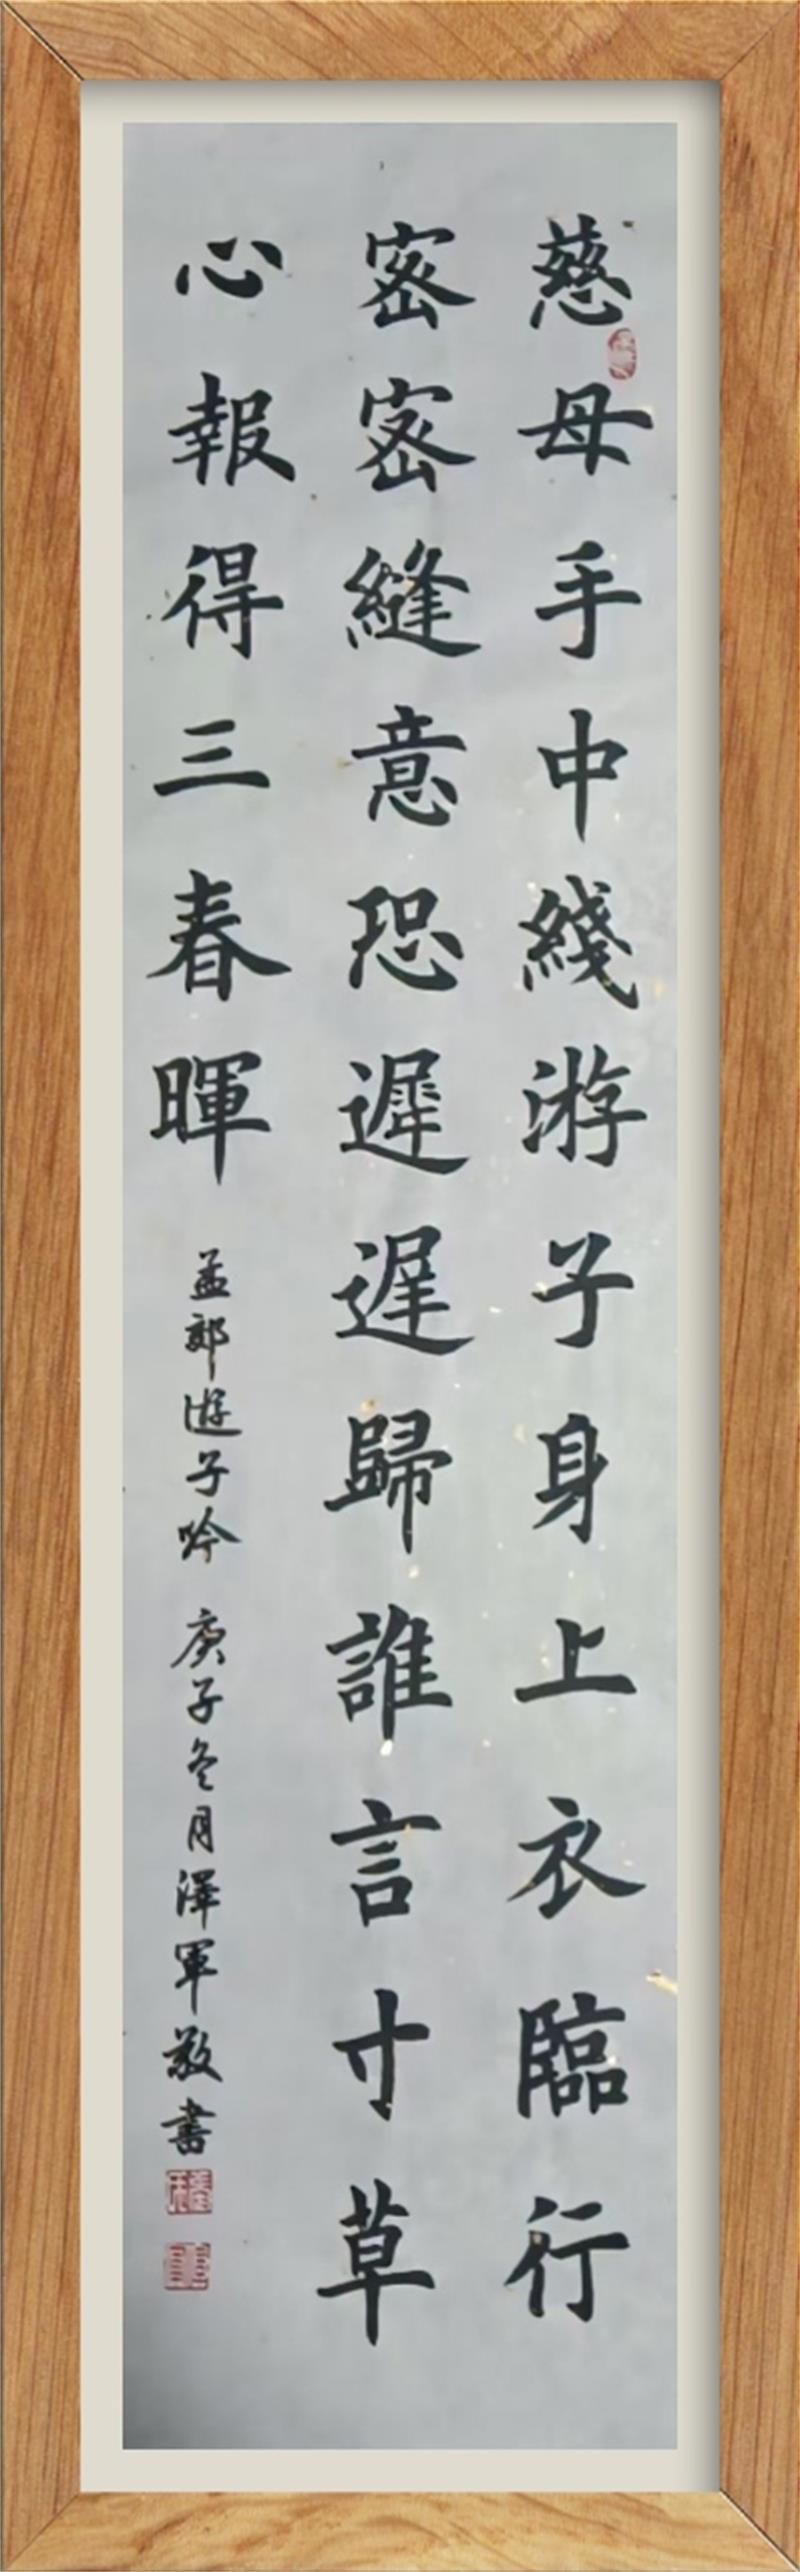 慈母手中綫游子身上衣臨行
密密縫意恐遲遲歸誰言寸草
心報得三春暉
孟郊遊子吟 庚子冬月澤軍敬書